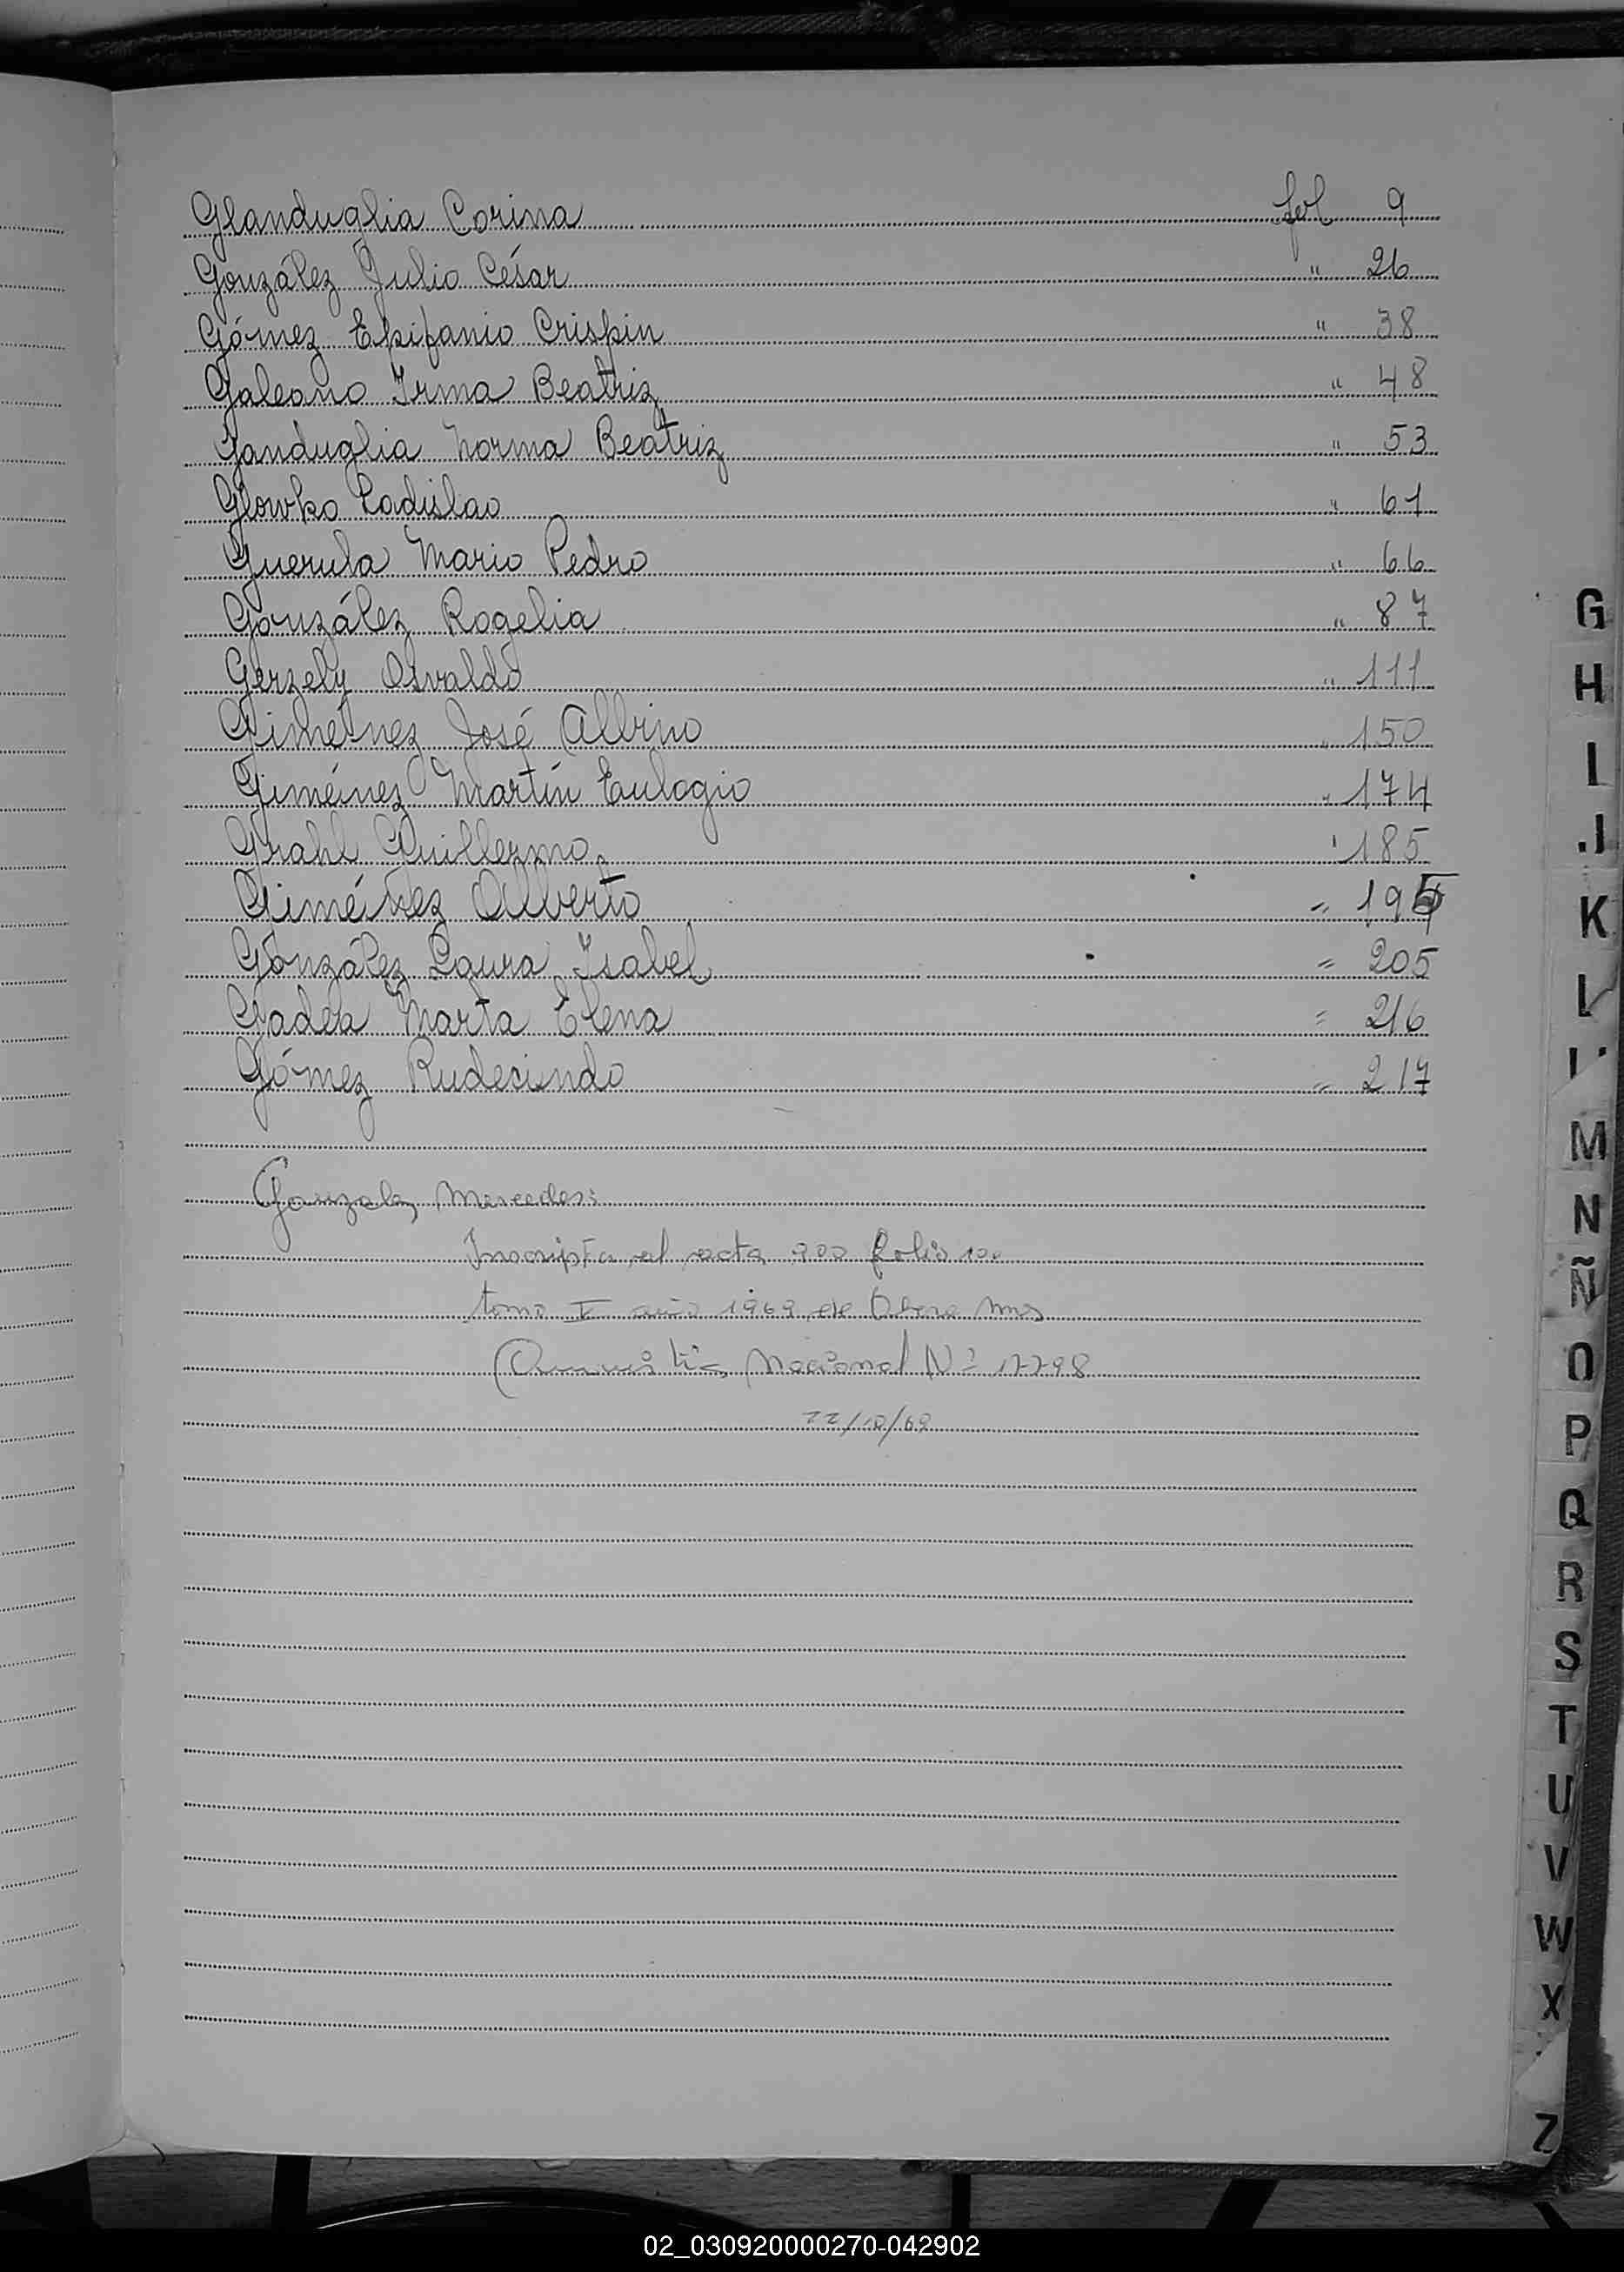 Glanduglia Corina fol 9
González Julio César " 26
Gómez Epifanio Crispin " 38
Galeano Irma Beatriz " 48
Ganduglia Norma Beatriz " 53
Glowko Ladislao " 61
Guerula Mario Pedro " 66
González Rogelia " 87
Gerzely Osvaldo " 111
Giménez José Albino " 150
Giménez Martín Eulogio " 174
Grahl Guillermo " 185
Giménez Alberto " 195
González Laura Isabel " 205
Gadea Marta Elena " 216
Gómez Rudecindo " 217
Gonzalez Mercedes:
Inscripta al acta 900 folio 100
tomo V año 1969 de Obera Mnes
(Amnistia Nacional Nº 17798
22/10/69
G
H
I
J
K
L
M
N
Ñ
O
P
Q
R
S
T
U
V
W
X
Z
02_030920000270-042902